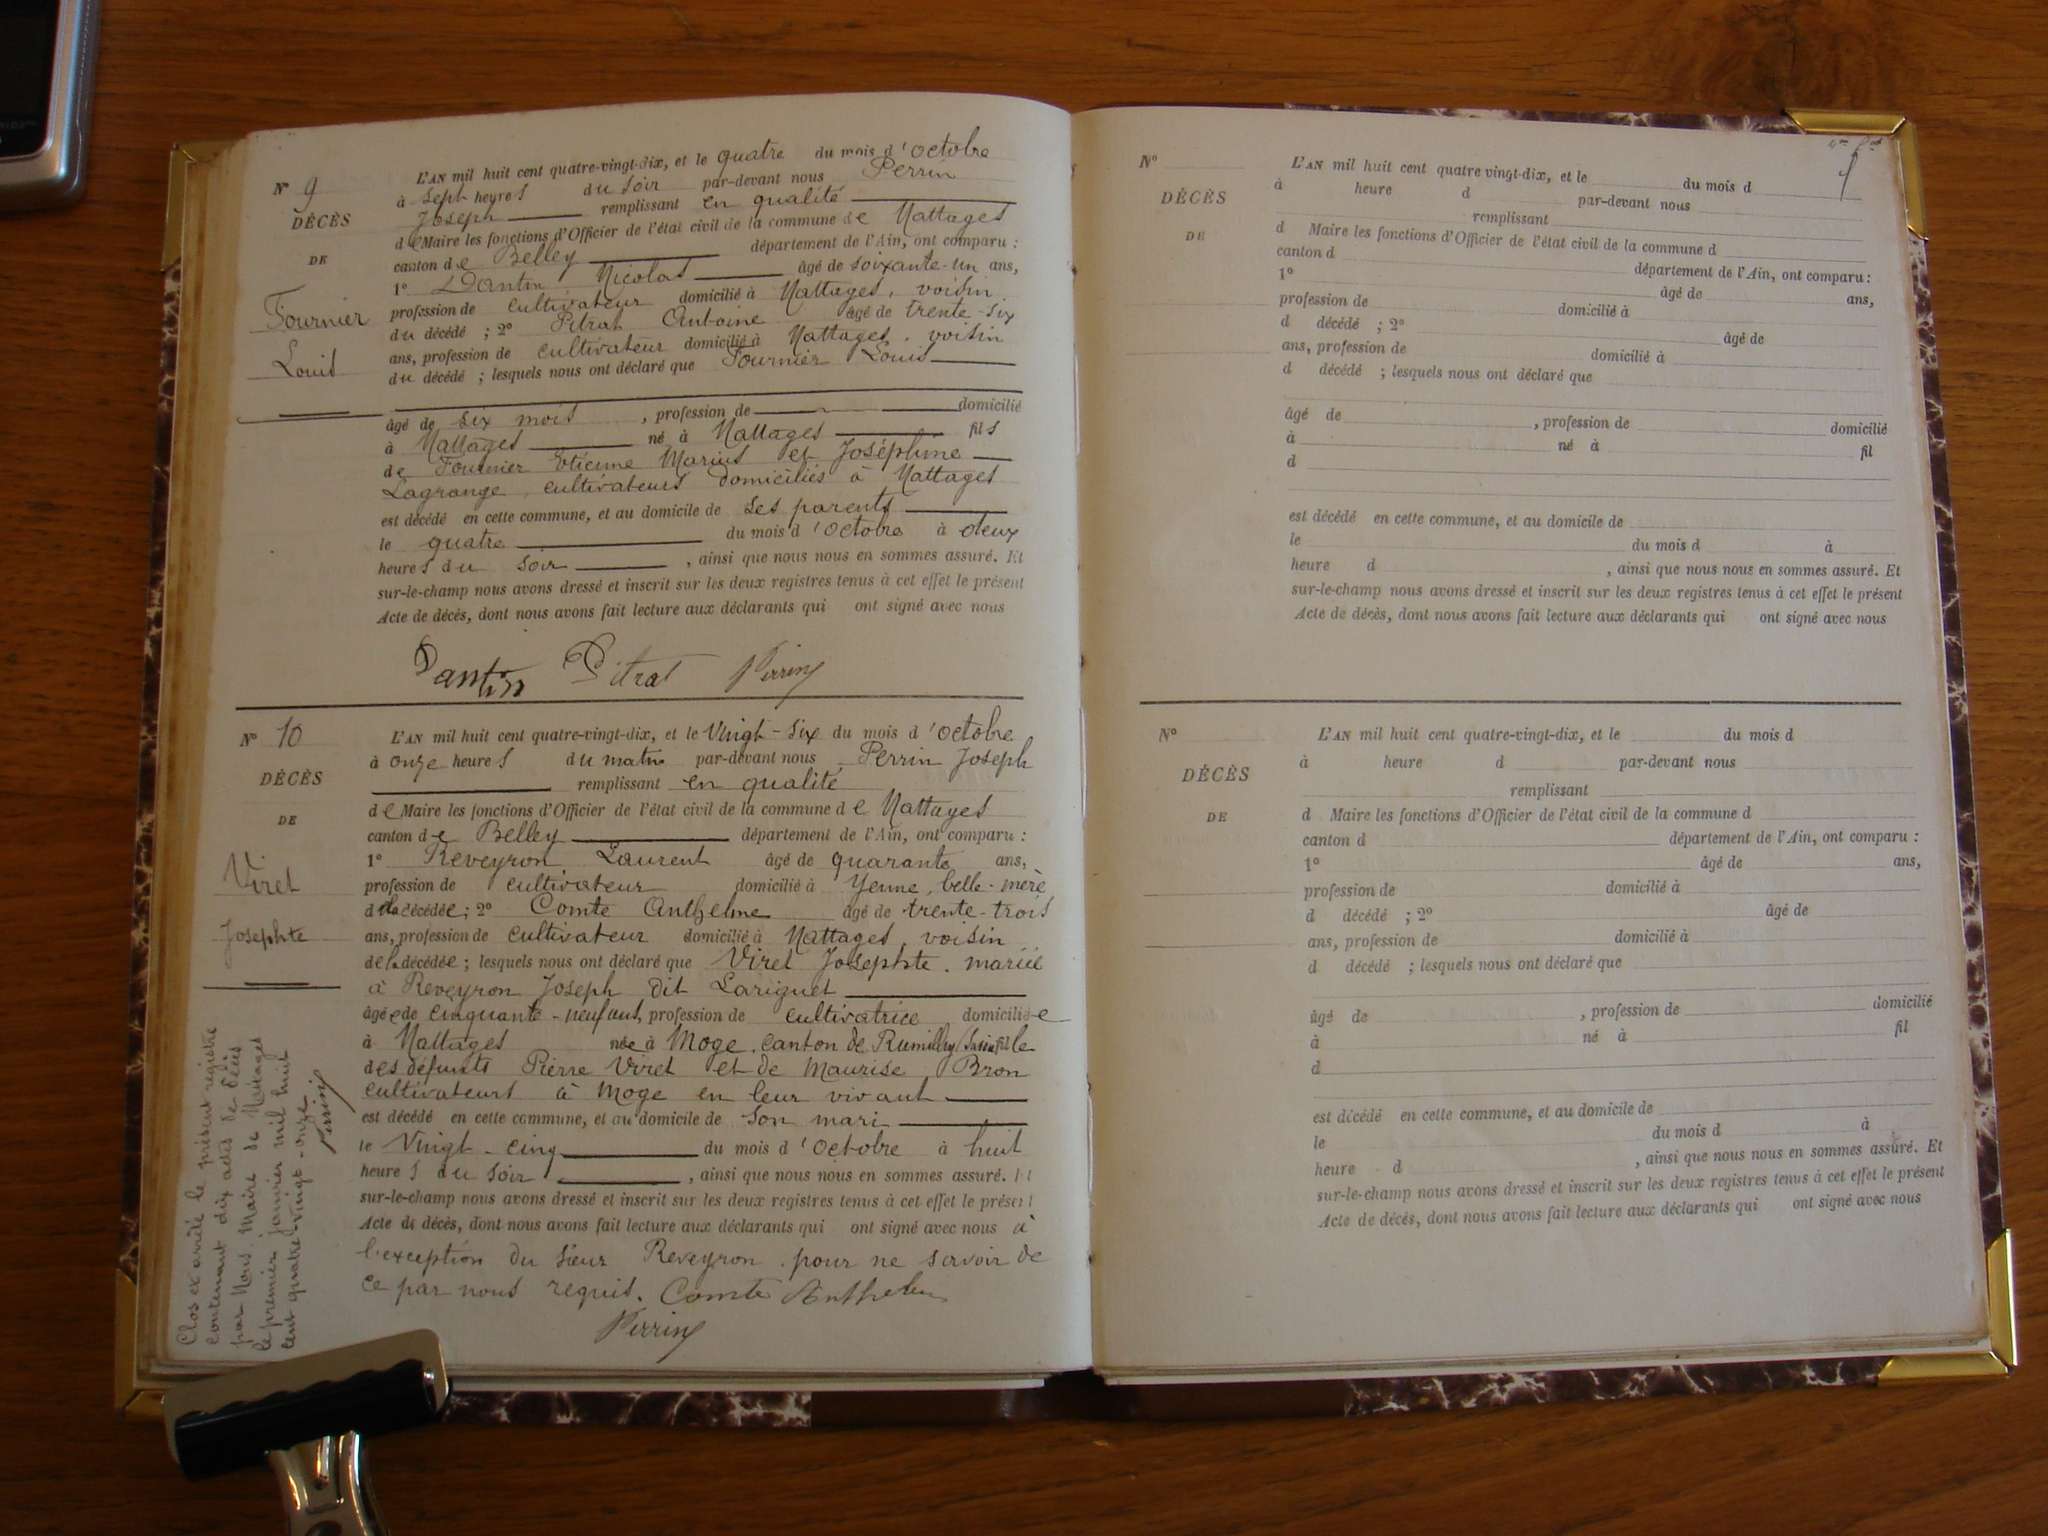 N° 9
DÉCÈS
DE
Fournier
Louis
L'AN mil huit cent quatre-vingt-dix, et le quatre du mois d'octobre
à sept heures du soir par-devant nous Perrin
Joseph remplissant en qualité
de Maire les fonctions d'Officier de l'état civil de la commune de Nattages
canton de Belley département de l'Ain, ont comparu :
1° Dantin Nicolas âgé de soixante-un ans,
profession de cultivateur domicilié à Nattages, voisin
du décédé ; 2° Pitrat Antoine âgé de trente-six
ans, profession de cultivateur domicilié à Nattages, voisin
du décédé ; lesquels nous ont déclaré que Fournier Louis
âgé de six mois, profession de domicilié
à Nattages né à Nattages fils
de Fournier Etienne Marius et Joséphine
Lagrange, cultivateurs domiciliés à Nattages
est décédé en cette commune, et au domicile de ses parents
le quatre du mois d'octobre à deux
heures du soir, ainsi que nous nous en sommes assuré. Et
sur-le-champ nous avons dressé et inscrit sur les deux registres tenus à cet effet le présent
Acte de décès, dont nous avons fait lecture aux déclarants qui ont signé avec nous
Dantin Pitrat Perrin
N° 10
DÉCÈS
DE
Viret
Josephte
L'AN mil huit cent quatre-vingt-dix, et le Vingt-six du mois d'octobre
à onze heures du matin par-devant nous Perrin Joseph
remplissant en qualité
de Maire les fonctions d'Officier de l'état civil de la commune de Nattages
canton de Belley département de l'Ain, ont comparu :
1° Reveyron Laurent âgé de quarante ans,
profession de cultivateur domicilié à Yenne, belle-mère
de la décédée ; 2° Comte Anthelme âgé de trente-trois
ans, profession de cultivateur domicilié à Nattages, voisin
de la décédée ; lesquels nous ont déclaré que Viret Josephte, mariée
à Reveyron Joseph dit Lariguet
âgée de cinquante-neuf ans, profession de cultivatrice domiciliée
à Nattages née à Moge, canton de Rumilly fille
des défunts Pierre Viret et de Maurise Bron
cultivateurs à Moge en leur vivant
est décédé en cette commune, et au domicile de son mari
le Vingt-cinq du mois d'octobre à huit
heures du soir, ainsi que nous nous en sommes assuré. Et
sur-le-champ nous avons dressé et inscrit sur les deux registres tenus à cet effet le présent
Acte de décès, dont nous avons fait lecture aux déclarants qui ont signé avec nous à
l'exception du sieur Reveyron pour ne savoir de
ce par nous requis. Comte Anthelme
Perrin
Clos et arrêté le présent registre
contenant dix actes de décès
par Nous, Maire de Nattages
le premier janvier mil huit
cent quatre-vingt-onze
Perrin
N°
DÉCÈS
DE
L'AN mil huit cent quatre vingt-dix, et le du mois d
à heure d par-devant nous
remplissant
d Maire les fonctions d'Officier de l'état civil de la commune d
canton d département de l'Ain, ont comparu :
1° âgé de ans,
profession de domicilié à
d décédé ; 2° âgé de
ans, profession de domicilié à
d décédé ; lesquels nous ont déclaré que
âgé de , profession de domicilié
à né à fil
d
est décédé en cette commune, et au domicile de
le du mois d à
heure d , ainsi que nous nous en sommes assuré. Et
sur-le-champ nous avons dressé et inscrit sur les deux registres tenus à cet effet le présent
Acte de décès, dont nous avons fait lecture aux déclarants qui ont signé avec nous
N°
DÉCÈS
DE
L'AN mil huit cent quatre-vingt-dix, et le du mois d
à heure d par-devant nous
remplissant
d Maire les fonctions d'Officier de l'état civil de la commune d
canton d département de l'Ain, ont comparu :
1° âgé de ans,
profession de domicilié à
d décédé ; 2° âgé de
ans, profession de domicilié à
d décédé ; lesquels nous ont déclaré que
âgé de , profession de domicilié
à né à fil
d
est décédé en cette commune, et au domicile de
le du mois d à
heure d , ainsi que nous nous en sommes assuré. Et
sur-le-champ nous avons dressé et inscrit sur les deux registres tenus à cet effet le présent
Acte de décès, dont nous avons fait lecture aux déclarants qui ont signé avec nous